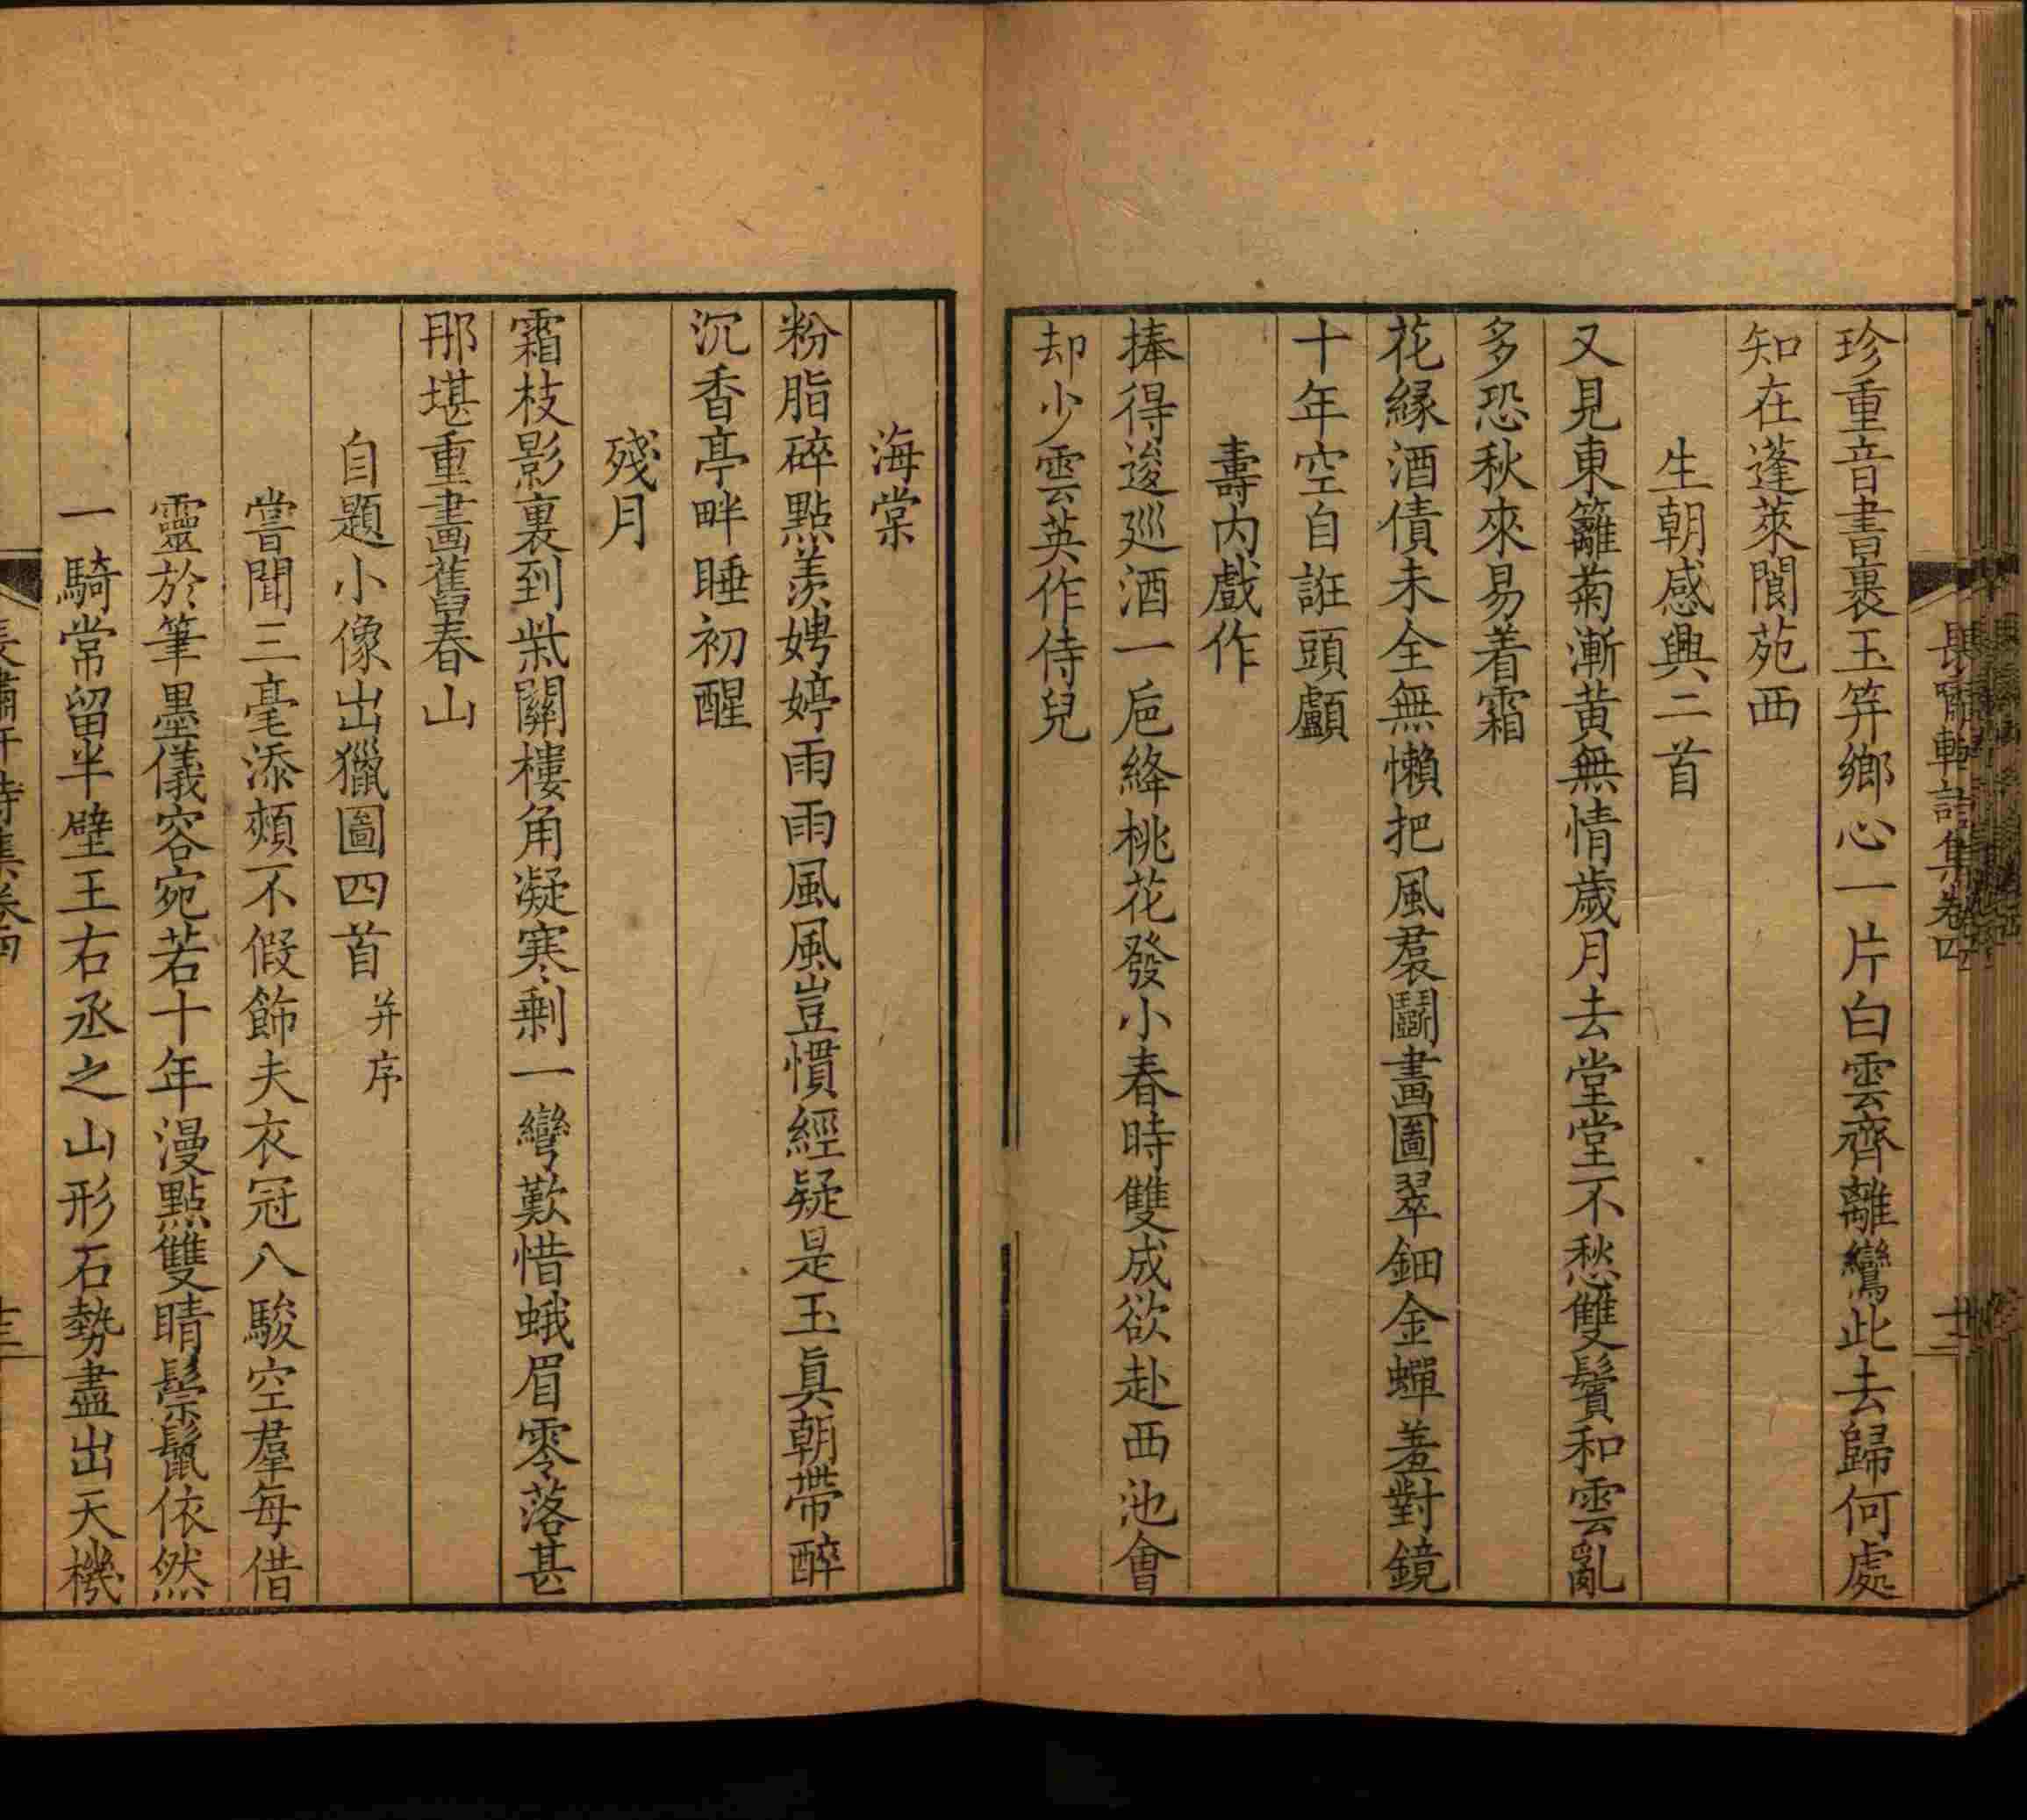 長嘯軒詩集卷四
十二
珍重音書裹玉笄鄉心一片白雲齊離鸞此去歸何處
知在蓬萊閬苑西
生朝感興二首
又見東籬菊漸黃無情歲月去堂堂不愁雙鬢和雲亂
多恐秋來易着霜
花緣酒債未全無懶把風裙鬭畫圖翠鈿金蟬羞對鏡
十年空自誑頭顱
壽內戲作
捧得逡廵酒一巵絳桃花發小春時雙成欲赴西池會
却少雲英作侍兒
海棠
粉脂碎點羨娉婷雨雨風風豈慣經疑是玉眞朝帶醉
沉香亭畔睡初醒
殘月
霜枝影裏到柴關樓角凝寒剩一彎歎惜蛾眉零落甚
那堪重畫舊春山
自題小像出獵圖四首并序
嘗聞三毫添頰不假飾夫衣冠八駿空羣每借
靈於筆墨儀容宛若十年漫點雙睛鬃鬣依然
一騎常留半壁王右丞之山形石勢盡出天機
長嘯軒詩集卷四
十三